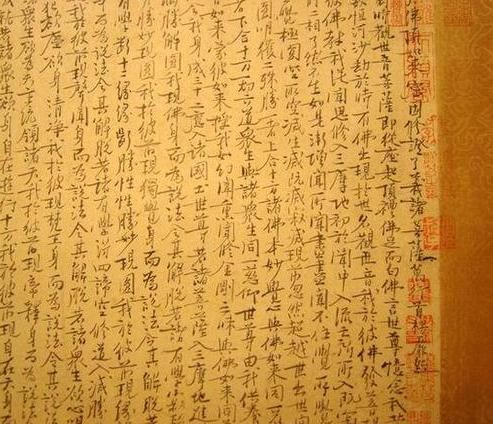 佛頂如來密因修證了義諸菩薩萬行首楞嚴經
爾時觀世音菩薩即從座起頂禮佛足而白佛言世尊憶念我昔
數恒河沙劫於時有佛出現於世名觀世音我於彼佛發菩提
彼佛教我從聞思修入三摩地初於聞中入流亡所所入既寂
二相了然不生如是漸增聞所聞盡盡聞不住覺所覺
空覺極圓空所空滅生滅既滅寂滅現前忽然超越世出世間
圓明獲二殊勝一者上合十方諸佛本妙覺心與佛如來同一
者下合十方一切六道眾生與諸眾生同一悲仰世尊由我供養
音如來蒙彼如來授我如幻聞薰聞修金剛三昧與佛如來同慈
令我身成三十二應入諸國土世尊若諸菩薩入三摩地進
勝解現圓我現佛身而為說法令其解脫若諸有學寂靜
勝妙現圓我於彼前現獨覺身而為說法令其解脫若
有學斷十二緣緣斷勝性勝妙現圓我於彼前現緣
身而為說法令其解脫若諸有學得四諦空修道入滅勝
我於彼前現聲聞身而為說法令其解脫若諸眾生欲心明
欲塵欲身清淨我於彼前現梵王身而為說法令其解脫
眾生欲為天主統領諸天我於彼前現帝釋身而為說法
就若諸眾生欲身自在遊行十方我於彼前現自在天身而